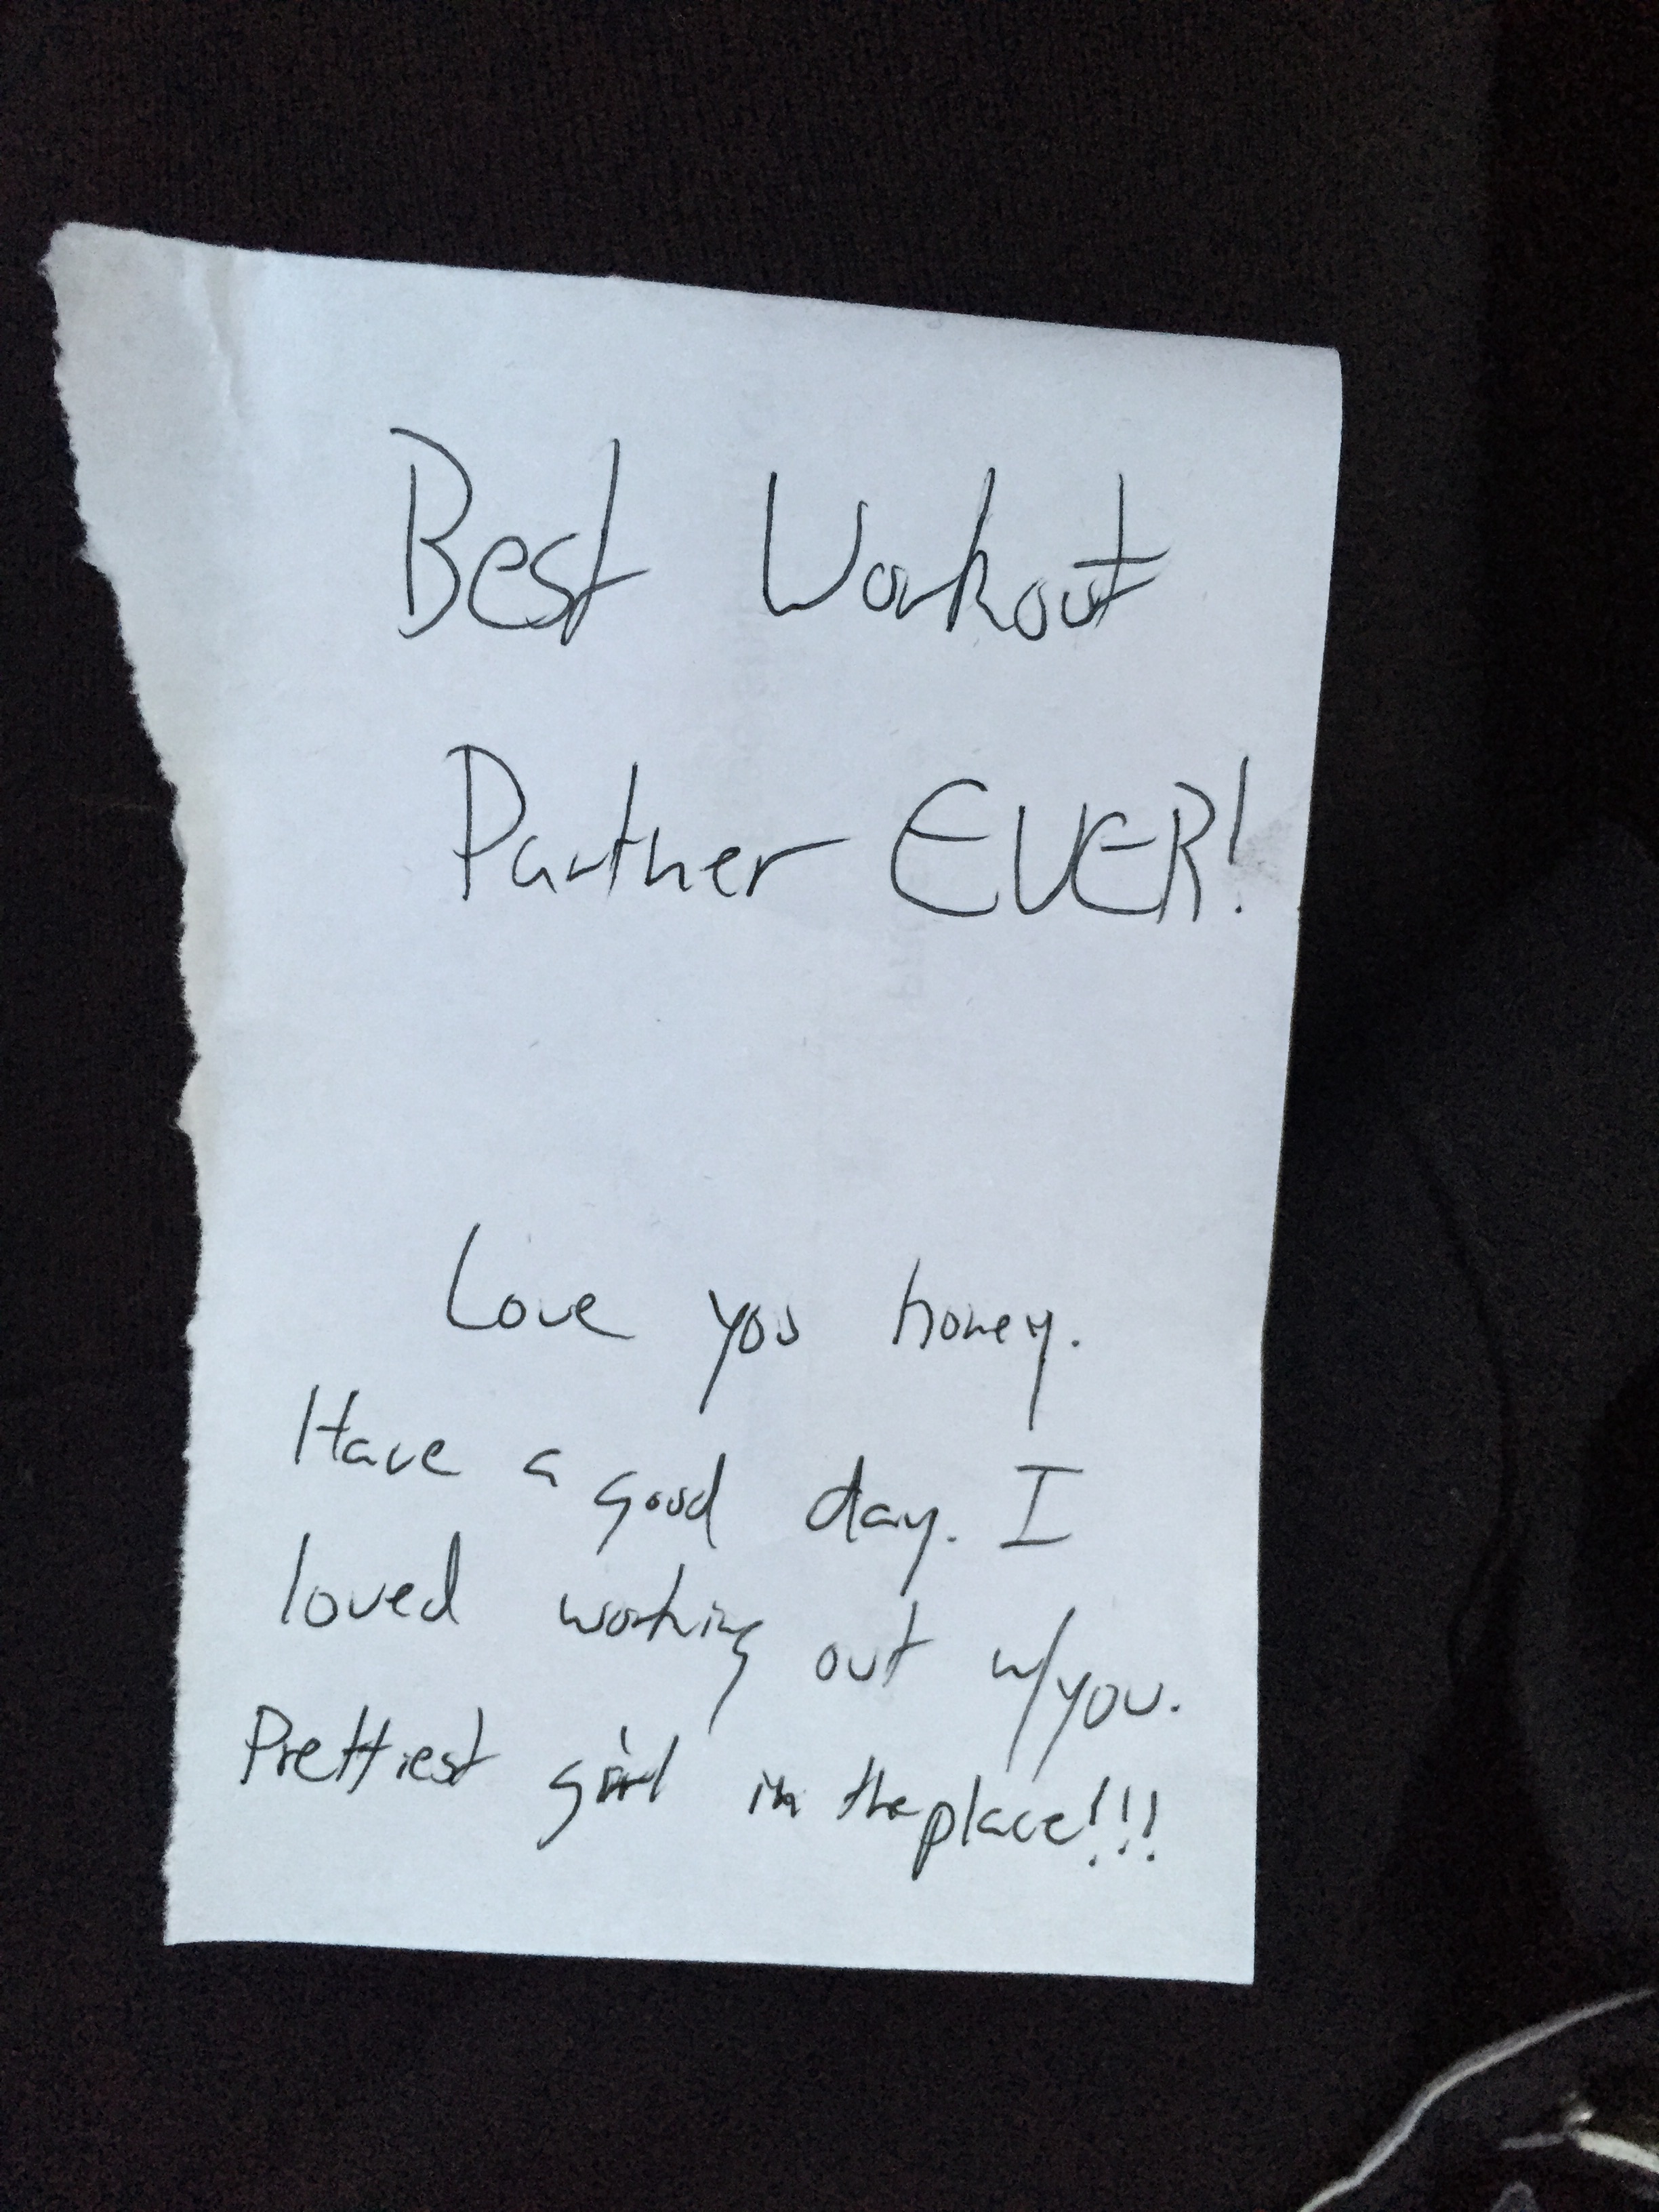 Best Workout
Partner EVER!
Love you honey.
Have a good day. I
loved working out w/you.
Prettiest girl in the place!!!